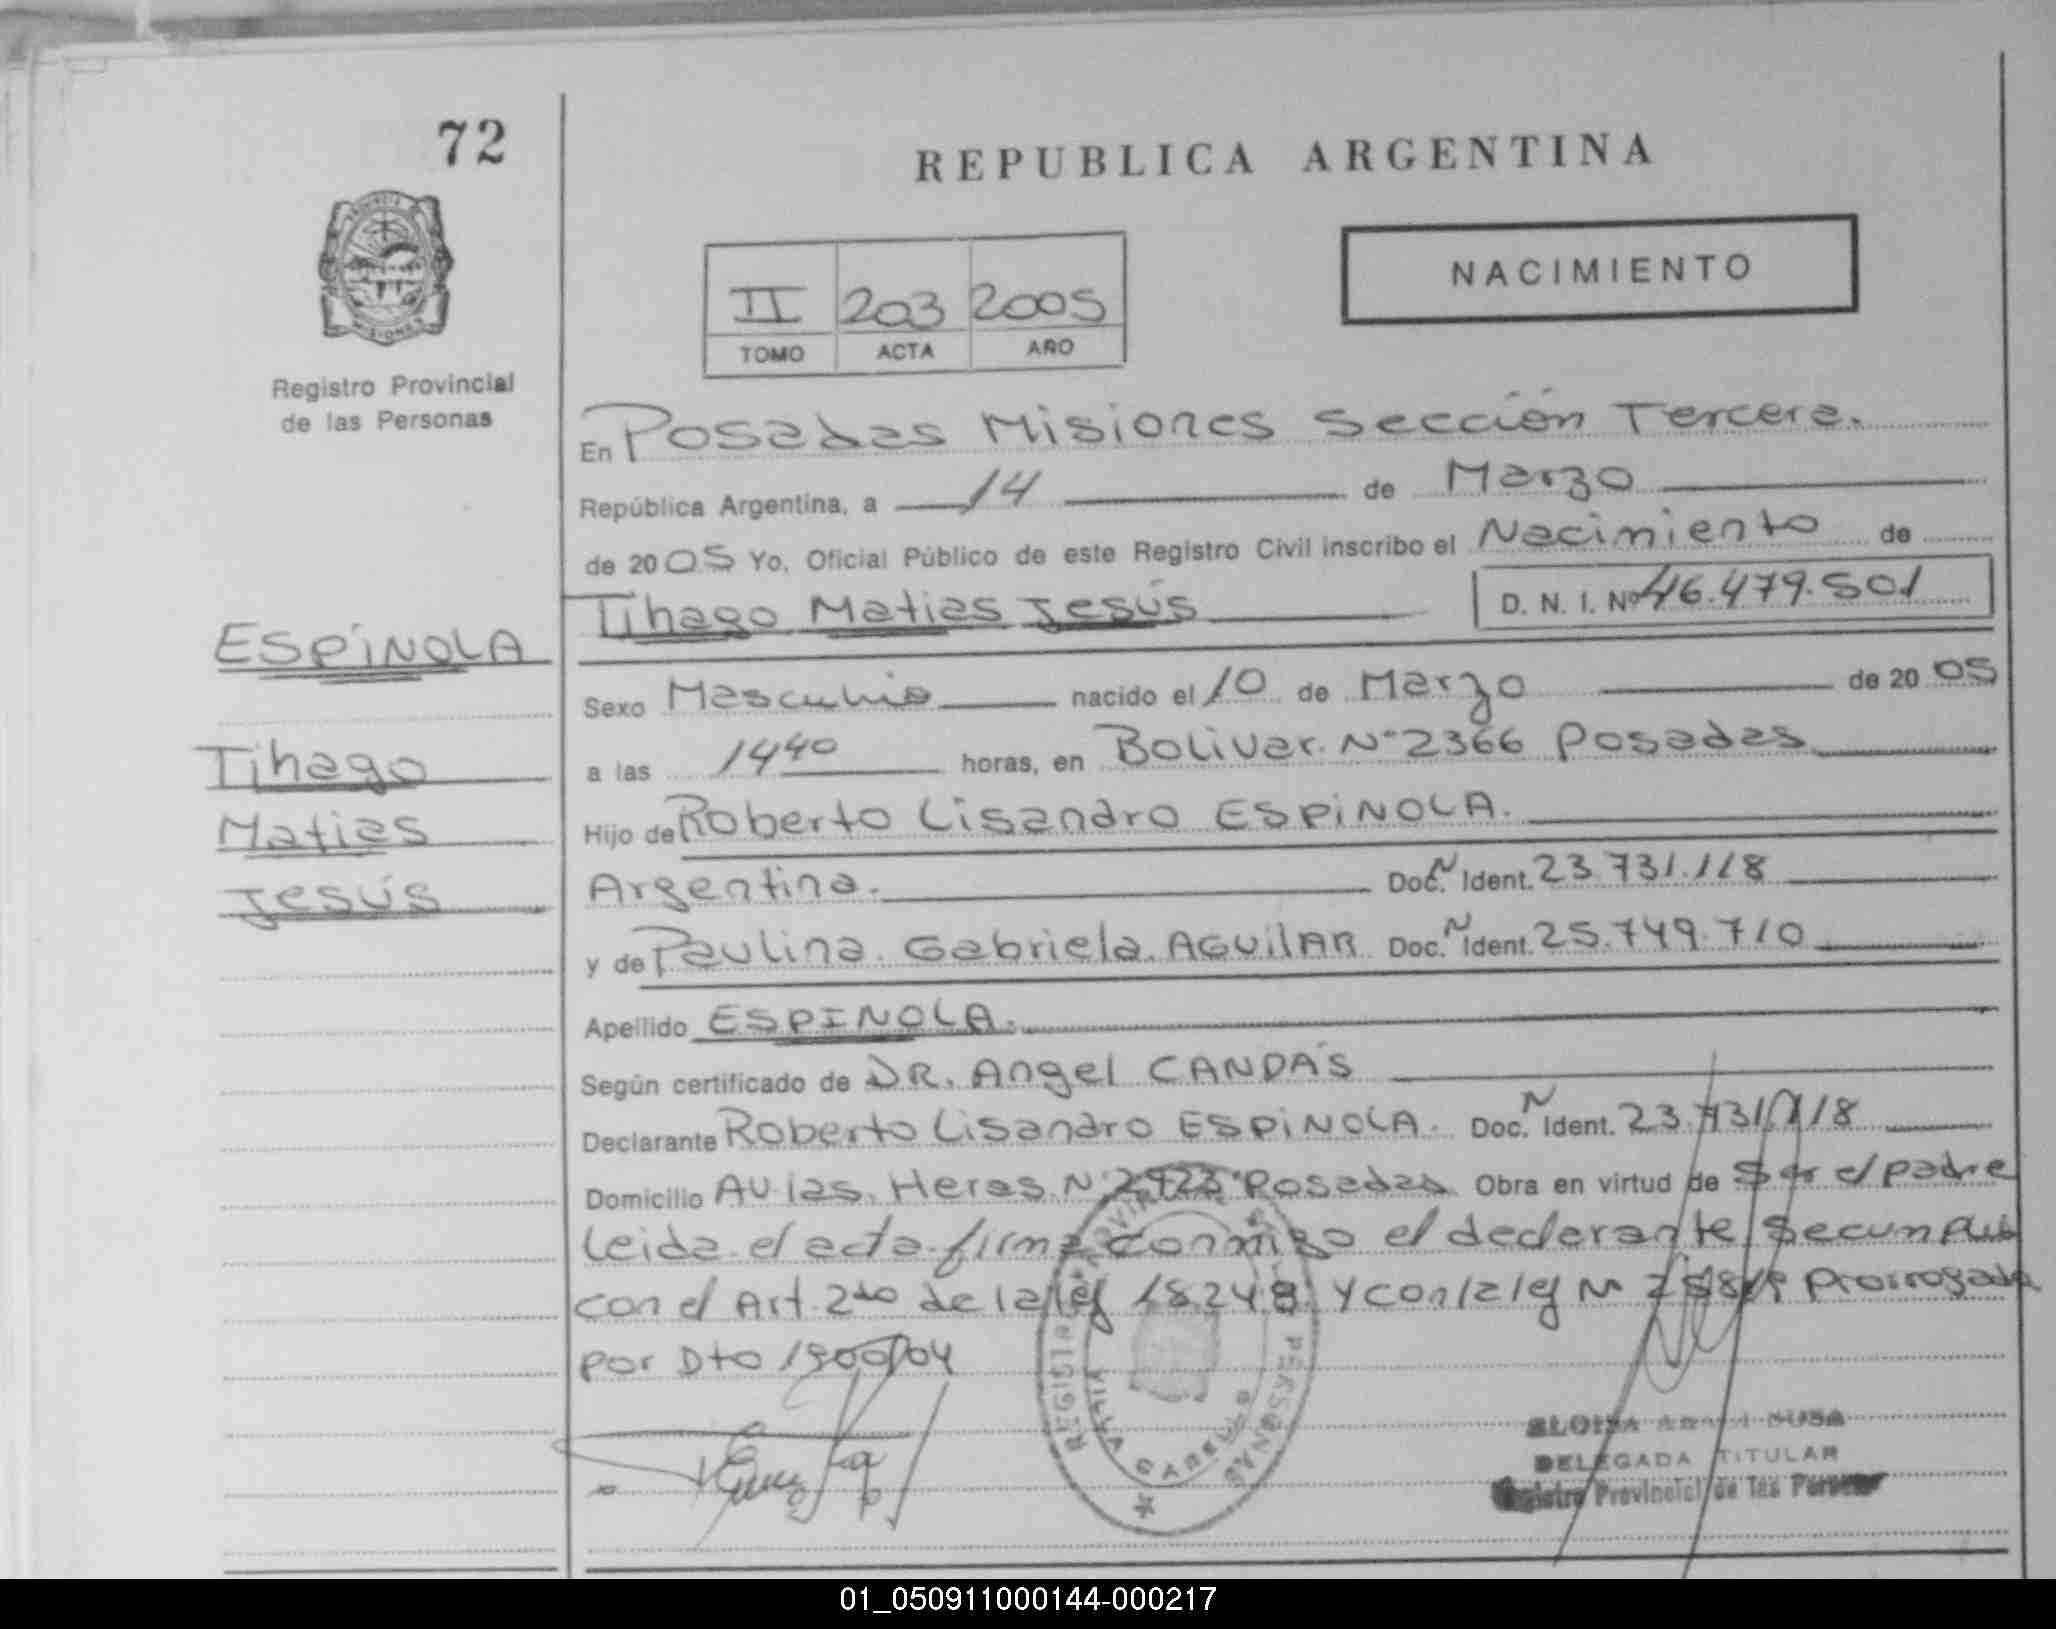 72
REPUBLICA ARGENTINA
PROVINCIA
MISIONES
Registro Provincial
de las Personas
II 203 2005
TOMO ACTA AÑO
NACIMIENTO
En Posadas Misiones Sección Tercera.
República Argentina, a 14 de Marzo
de 2005 Yo, Oficial Público de este Registro Civil inscribo el Nacimiento de
Tihago Matias Jesús D. N. I. Nº 46.479.501
ESPíNOLA
Tihago
Matias
Jesús
Sexo Masculino nacido el 10 de Marzo de 2005
a las 14 40 horas, en Bolivar. Nº 2366 Posadas
Hijo de Roberto Lisandro ESPiNOLA.
Argentina. Doc. N Ident. 23.731.118
y de Paulina. Gabriela. AGUilAR Doc. N Ident. 25.749.710
Apellido ESPINOLA.
Según certificado de DR. Angel CANDÁS
Declarante Roberto Lisandro ESPiNOLA. Doc. N Ident. 23.731.118
Domicilio AV las Heras N Posadas Obra en virtud de Ser el padre
Leida el acta firma conmigo el declarante Se
con el Art. 2do de la ley 18.248 y con la ley Nº Prorrogada
por Dto 1900/04
REGISTRO PROVINCIAL DE LAS PERSONAS
VILLA CABELLO
DELEGADA TITULAR
Registro Provincial de las Personas
01_050911000144-000217